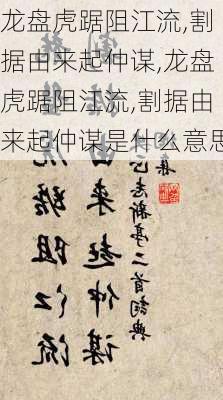 龙盘虎踞阻江流,割
据由来起仲谋,龙盘
虎踞阻江流,割据由
来起仲谋是什么意思
踞阻江流
由来起仲谋
新亭二首